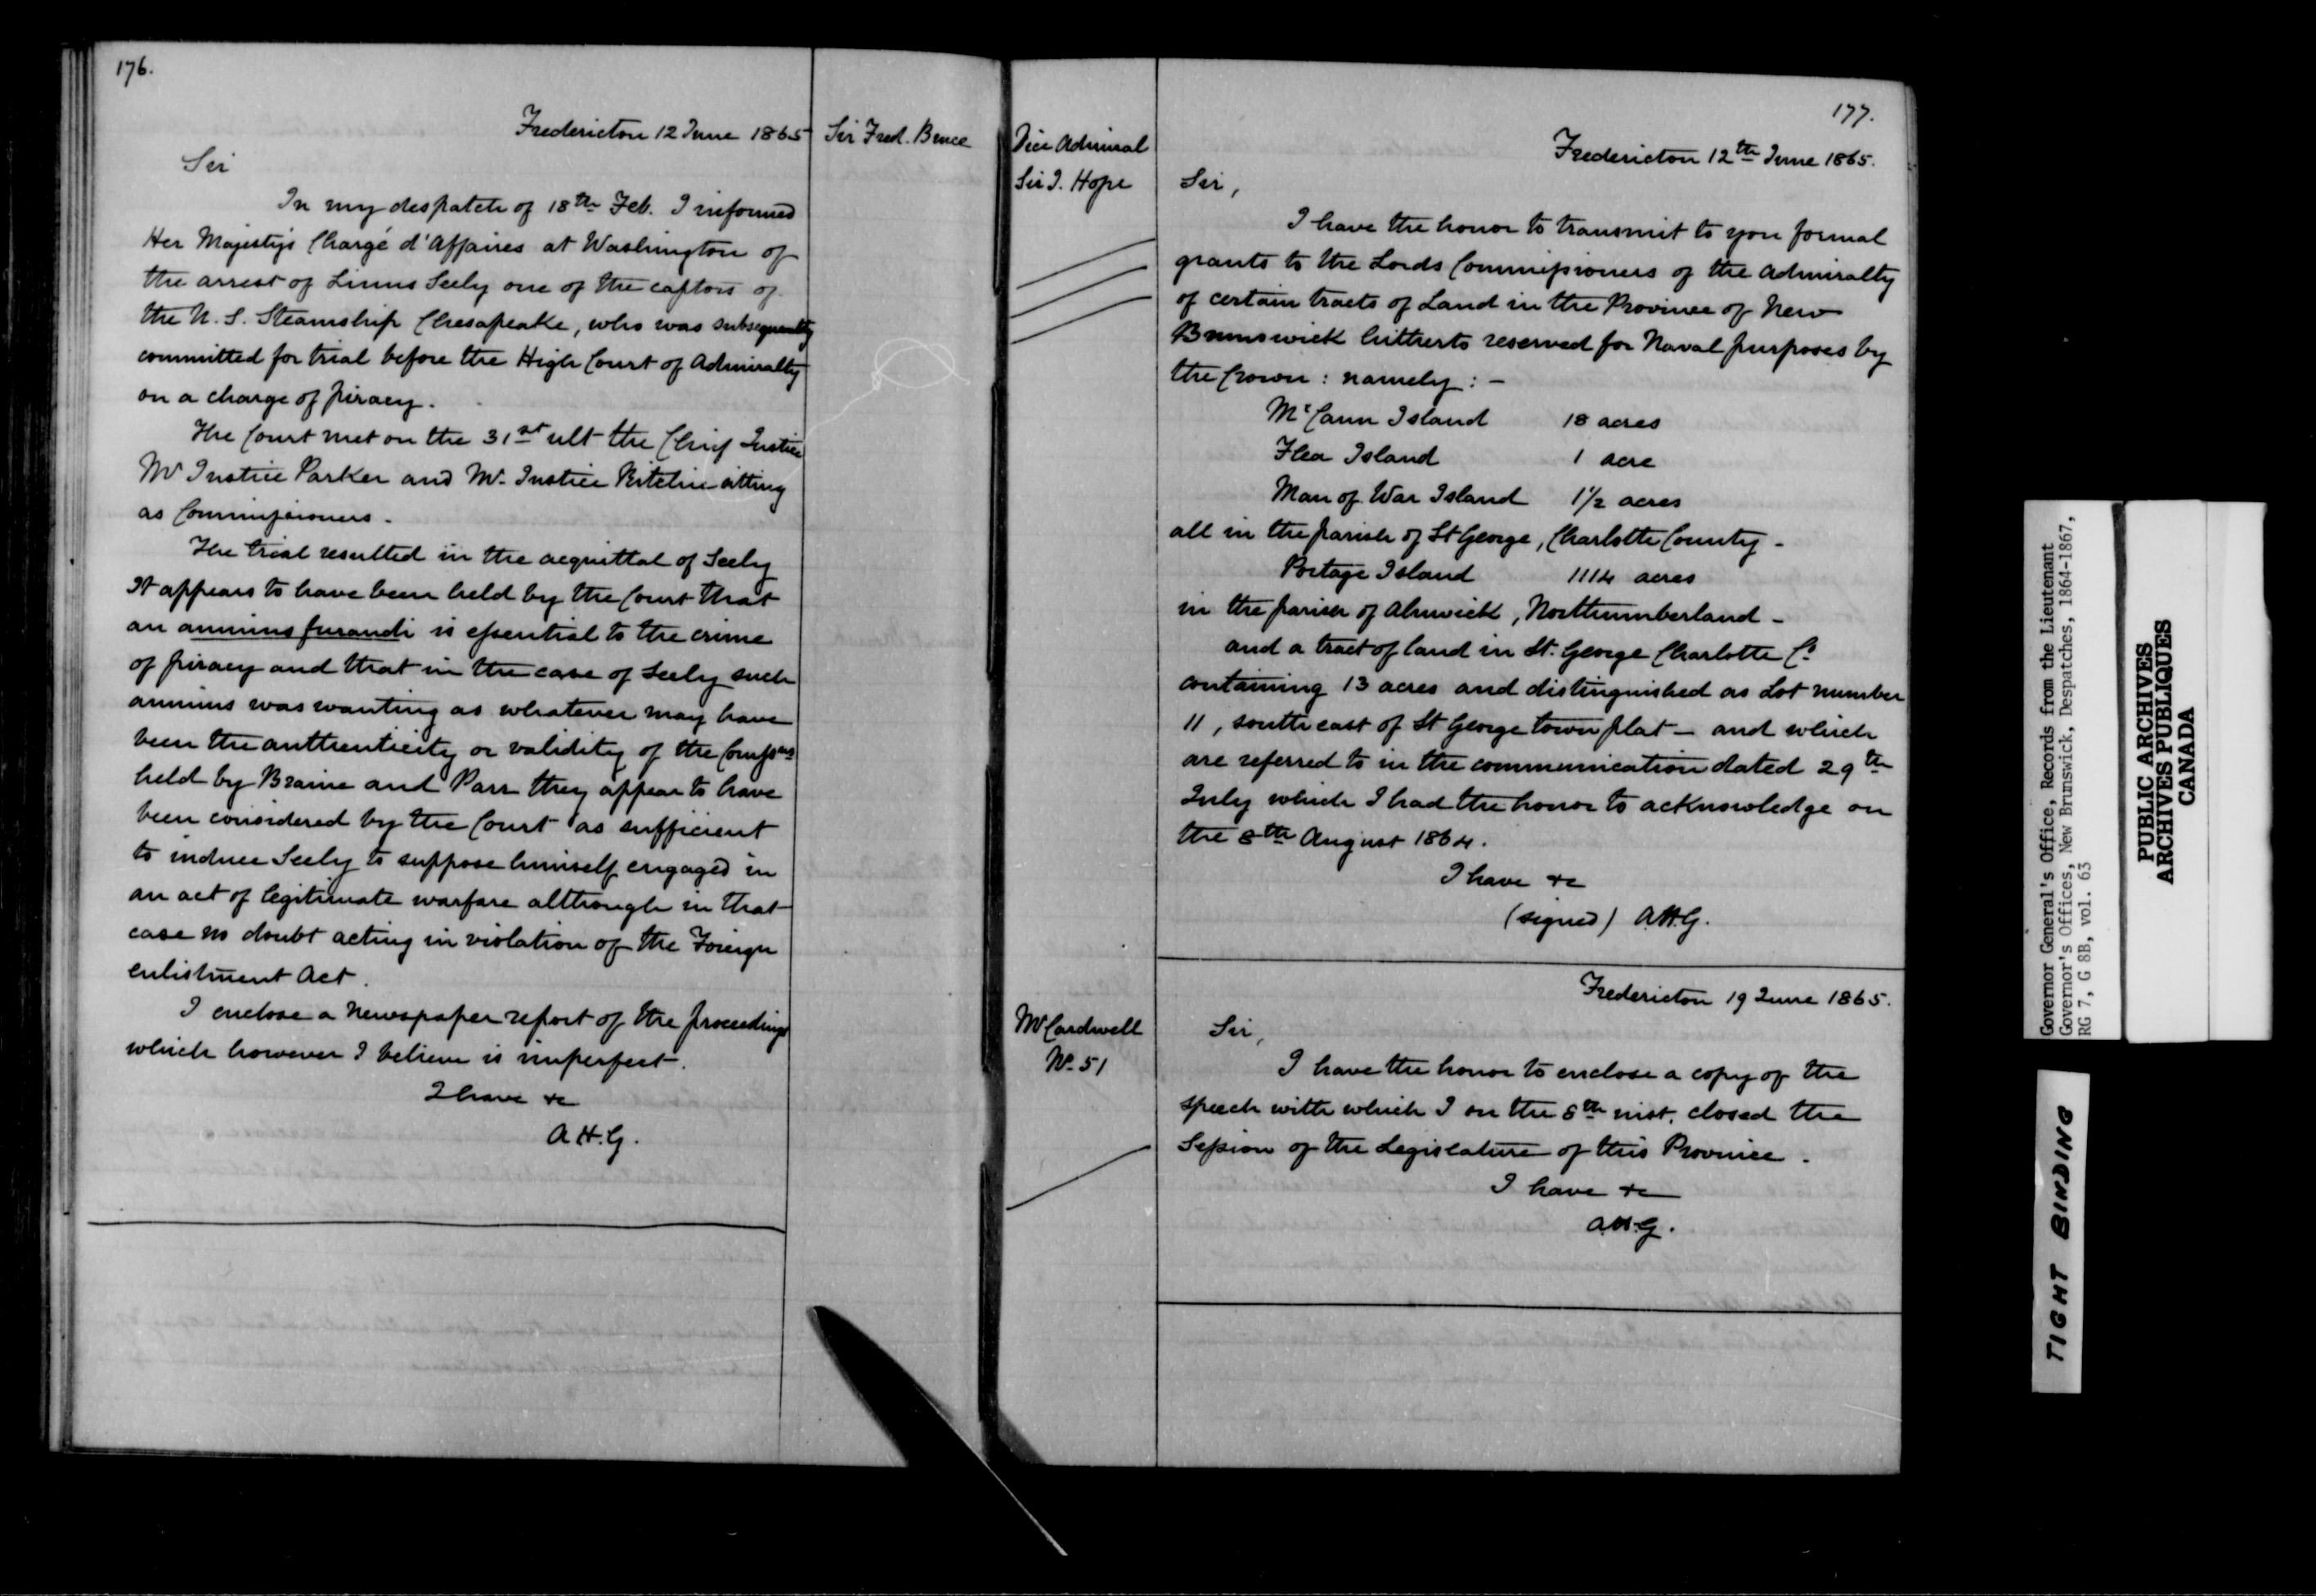 176.
Fredericton 12 June 1865
Sir Fred. Bruce
Sir
In my despatch of 18th Feb. I informed
Her Majestys Chargé d'Affaires at Washington of
the arrest of Linus Seely one of the captors of
the U.S. Steamship Chesapeake, who was subsequently
committed for trial before the High Court of Admiralty
on a charge of piracy.
The Court met on the 31st ult the Chief Justice
Mr Justice Parker and Mr Justice Ritchie sitting
as Commissioners.
The trial resulted in the acquittal of Seely
It appears to have been held by the Court that
an animus furandi is essential to the crime
of piracy and that in the case of Seely such
animus was wanting as whatever may have
been the authenticity or validity of the
held by Braine and Parr they appear to have
been considered by the Court as sufficient
to induce Seely to suppose himself engaged in
an act of legitimate warfare although in that
case no doubt acting in violation of the Foreign
enlistment Act.
I enclose a newspaper report of the proceedings
which however I believe is imperfect.
I have &c
A.H.G.
177.
Fredericton 12th June 1865.
Vice Admiral
Sir J. Hope
Sir,
I have the honor to transmit to you formal
grants to the Lords Commissioners of the Admiralty
of certain tracts of Land in the Province of New
Brunswick hitherto reserved for Naval purposes by
the Crown: namely: -
McCann Island 18 acres
Flea Island 1 acre
Man of War Island 1 1/2 acres
all in the parish of St George, Charlotte County -
Portage Island 1114 acres
in the parish of Alnwick, Northumberland -
and a tract of land in St. George Charlotte Co
containing 13 acres and distinguished as Lot number
11, south east of St George town plat - and which
are referred to in the communication dated 29th
July which I had the honor to acknowledge on
the 8th August 1864.
I have &c
(signed) A.H.G.
Fredericton 19 June 1865.
Mr Cardwell
No 51
Sir,
I have the honor to enclose a copy of the
speech with which I on the 8th inst. closed the
Session of the Legislature of this Province.
I have &c
A.H.G.
Governor General's Office, Records from the Lieutenant
Governor's Offices, New Brunswick, Despatches, 1864-1867,
RG 7, G 8B, vol. 63
PUBLIC ARCHIVES
ARCHIVES PUBLIQUES
CANADA
TIGHT BINDING